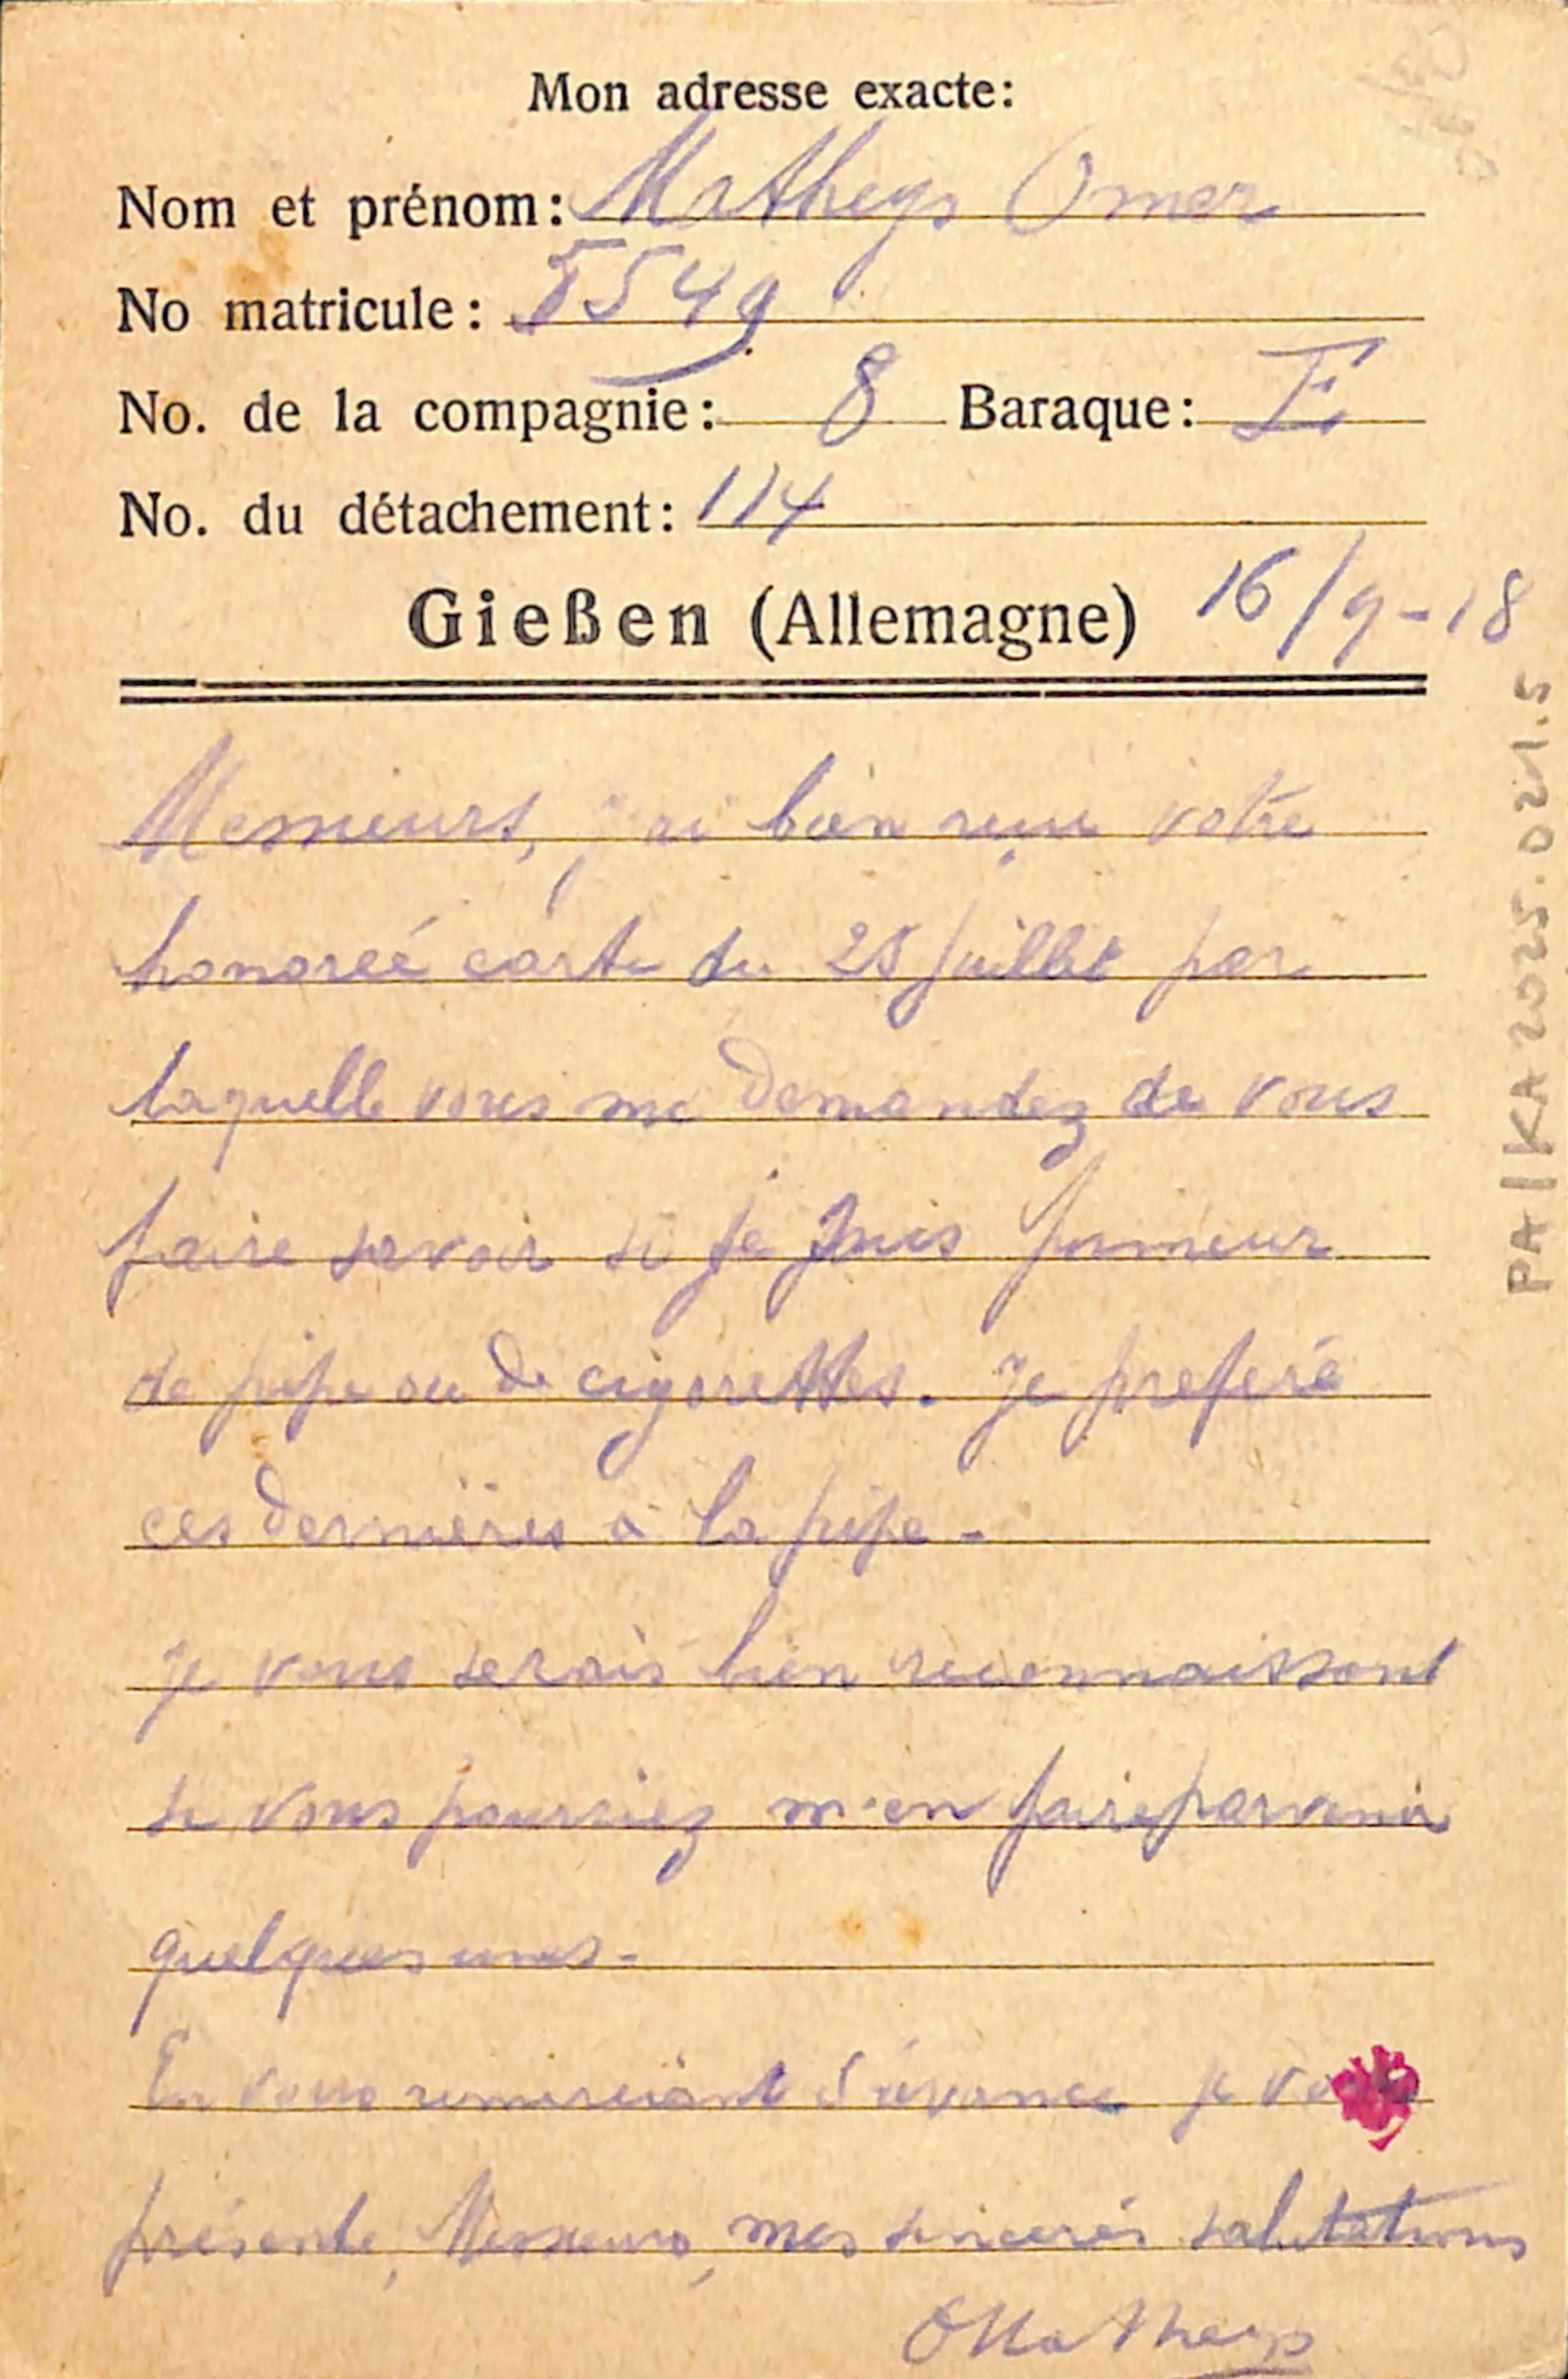 Mon adresse exacte:
Nom et prénom: Matheys Omer
No matricule: 5549
No. de la compagnie: 8 Baraque: E
No. du détachement: 114
Gießen (Allemagne) 16/9-18
Messieurs, j'ai bien reçu votre
honoreé carte du 25 juillet par
laquelle vous me demandez de vous
faire savoir si je suis fumeur
de pipe ou de cigarettes. Je preferé
ces dernières à la pipe -
je vous serais bien reconnaissant
si vous pourriez m'en faire parvenir
quelques unes -
En vous remerciant d'avance je
présente, Messieurs, mes sincerès salutations
OMatheys
PA|KA2025.021.5